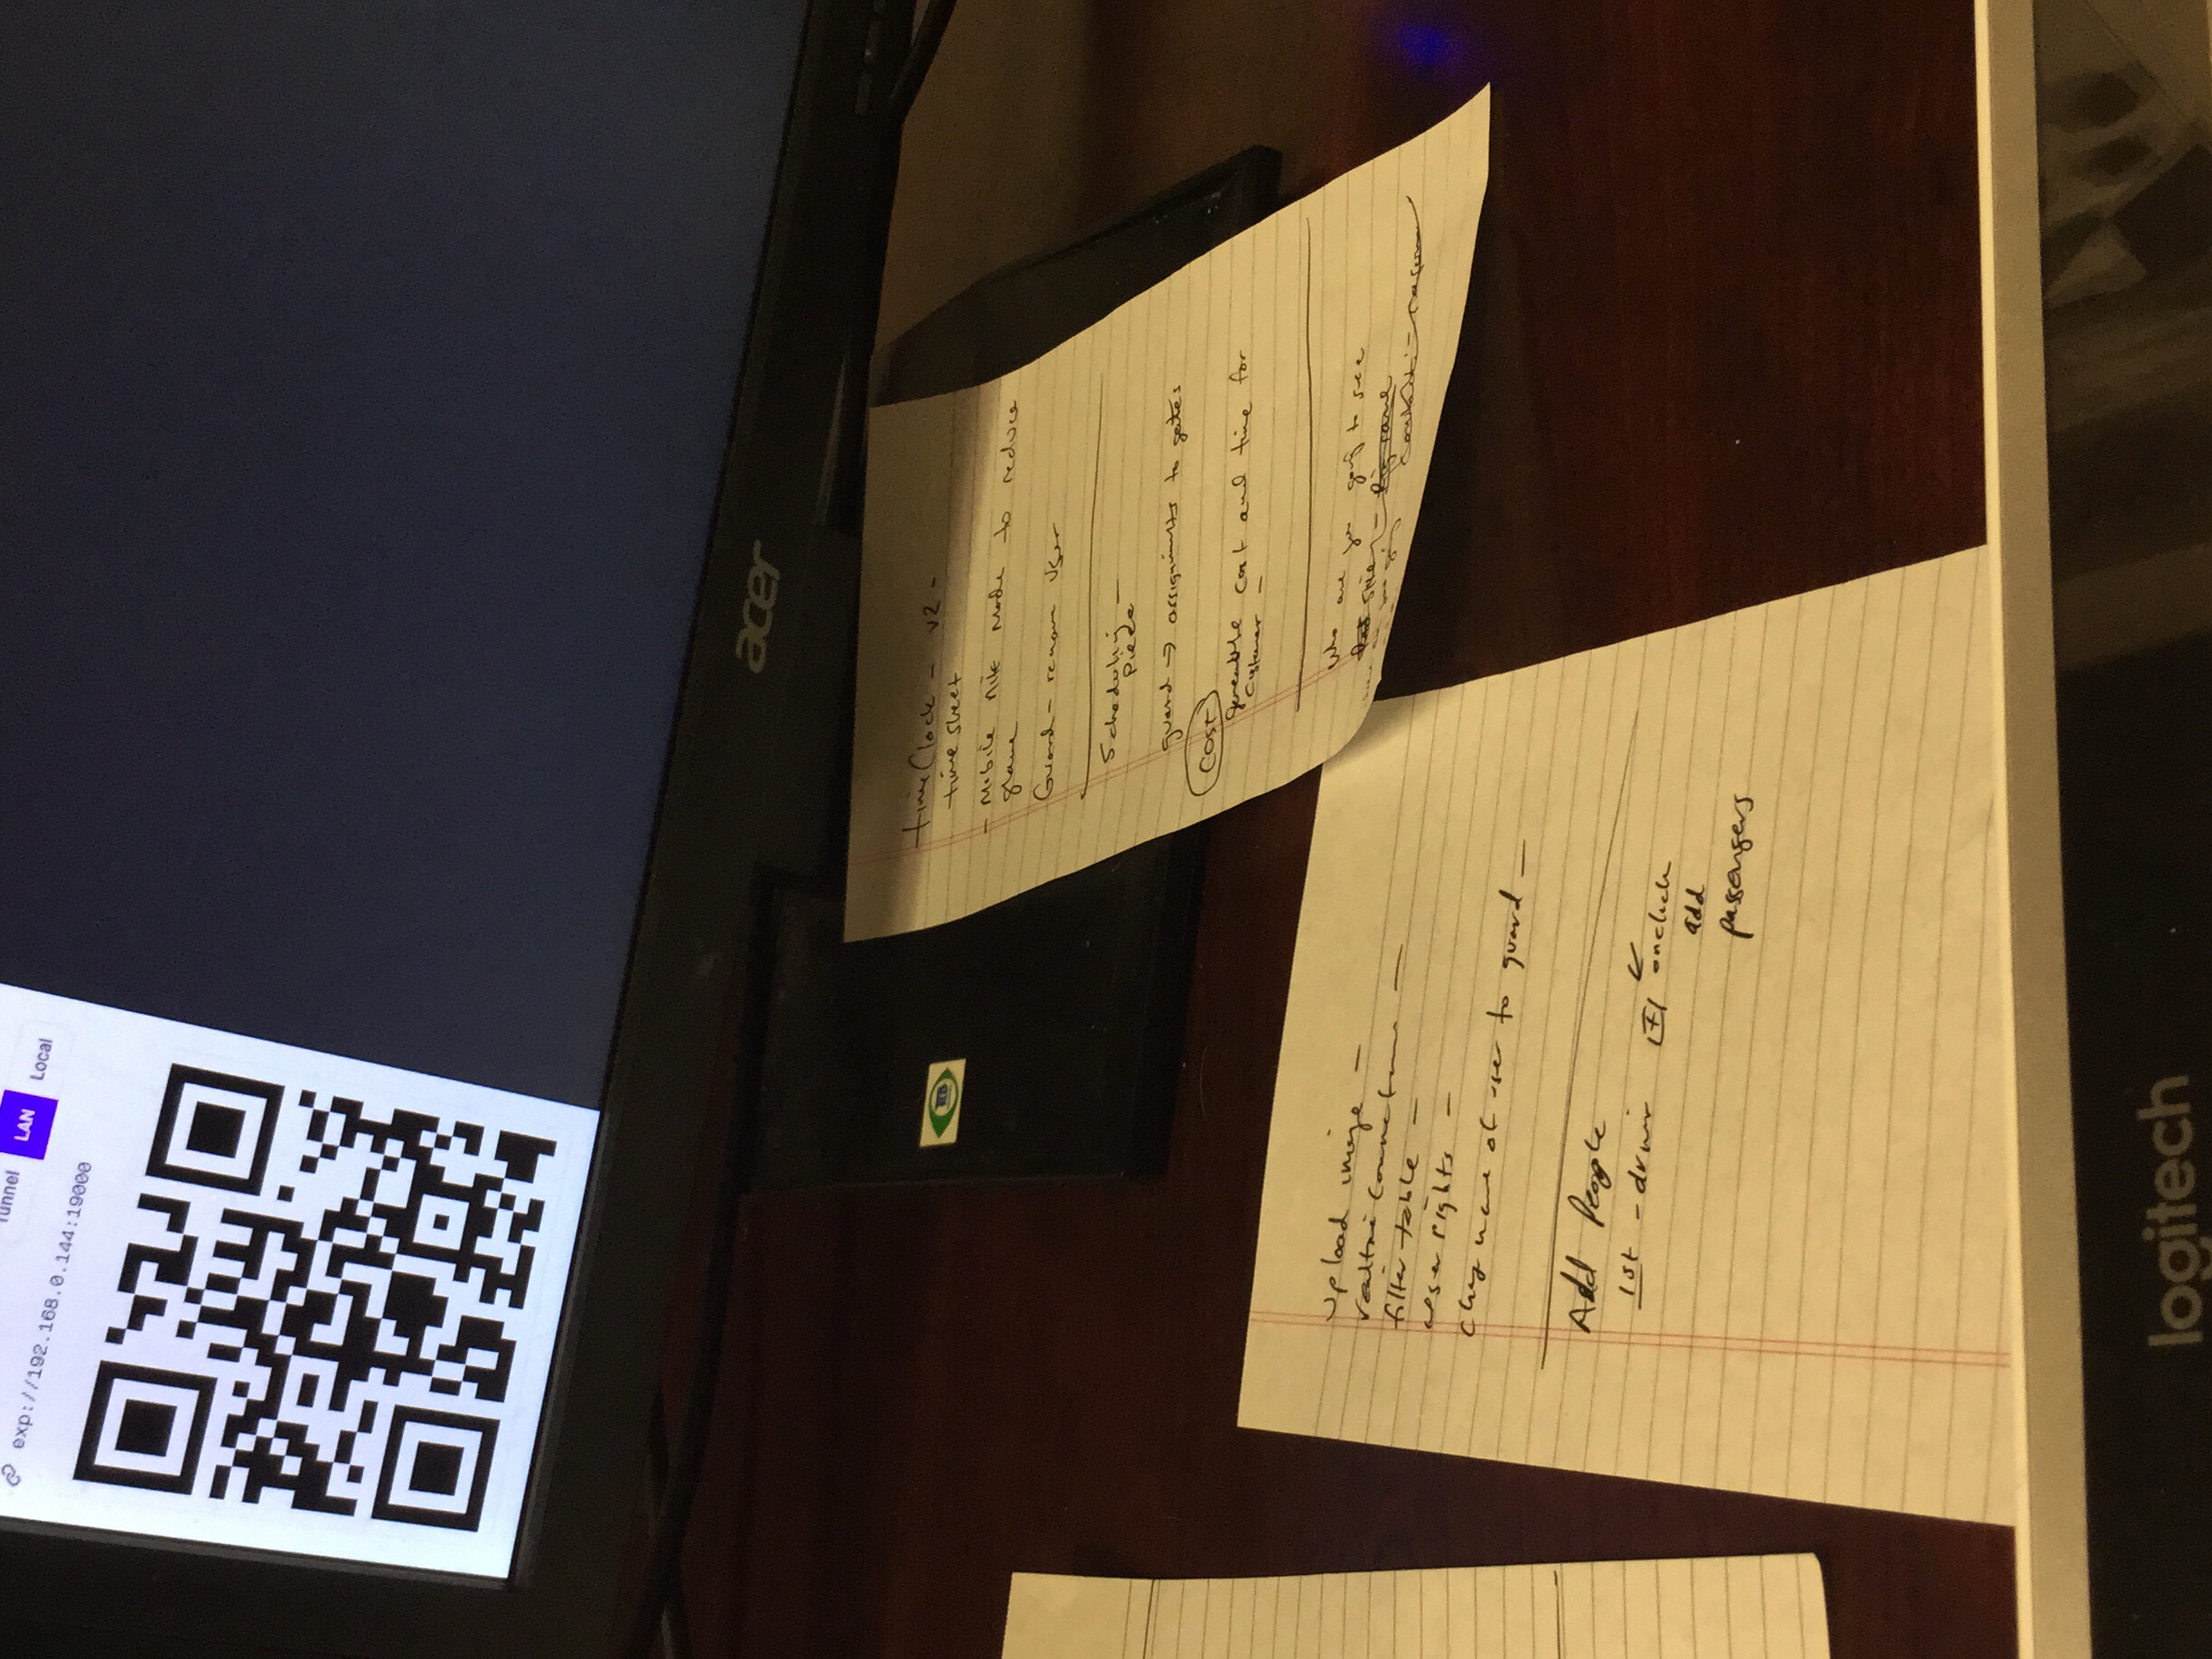 Tunnel LAN Local
exp://192.168.0.144:19000
acer
HB
timeClock - v2 -
time sheet
- Mobile nite mode to reduce
glare
Guard - remove User
Scheduling -
Piece
guard → assignments to gates
Cost
cost and time for
customer -
who are you going to see
upload image -
realtime connections -
filter table -
user rights -
chng name of user to guard -
Add People
1st - driver [+] ↙ onclick
add
passengers
logitech